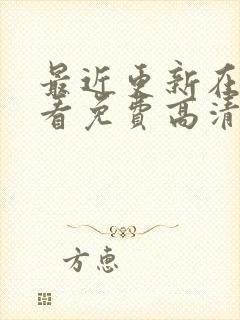 最近更新在
看免费高清
方惠